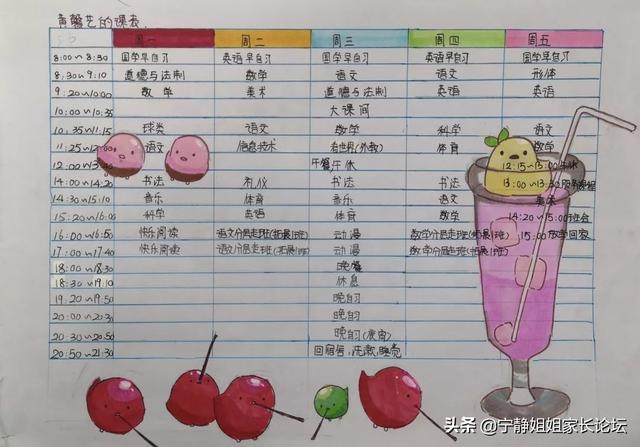 黄馨艺的课表
周一 周二 周三 周四 周五
8:00~8:30 国学早自习 英语早自习 国学早自习 英语早自习 国学早自习
8:30~9:10 道德与法制 数学 语文 语文 形体
9:20~10:00 数学 美术 道德与法制 英语 英语
10:00~10:35 大课间
10:35~11:15 球类 语文 数学 科学 语文
11:25~12:00 语文 信息技术 看世界(外教) 体育 数学
12:00~ 午餐午休 12:15~13:05午休
14:00~14:20 书法 礼仪 书法 书法 13:00~13:30
14:30~15:10 音乐 体育 音乐 语文
15:20~16:00 科学 英语 体育 数学 14:20~15:00班会
16:00~16:50 快乐阅读 语文分层走班(拓展1班) 动漫 数学分层走班(拓展1班) 15:00放学回家
17:00~17:40 快乐阅读 语文分层走班(拓展1班) 动漫 数学分层走班(拓展1班)
18:00~18:30 晚餐
18:30~19:10 休息
19:20~19:50 晚自习
20:00~20:30 晚自习
20:30~20:50 晚自习
20:50~21:30 回宿舍,洗漱,睡觉
头条 @宁静姐姐家长论坛